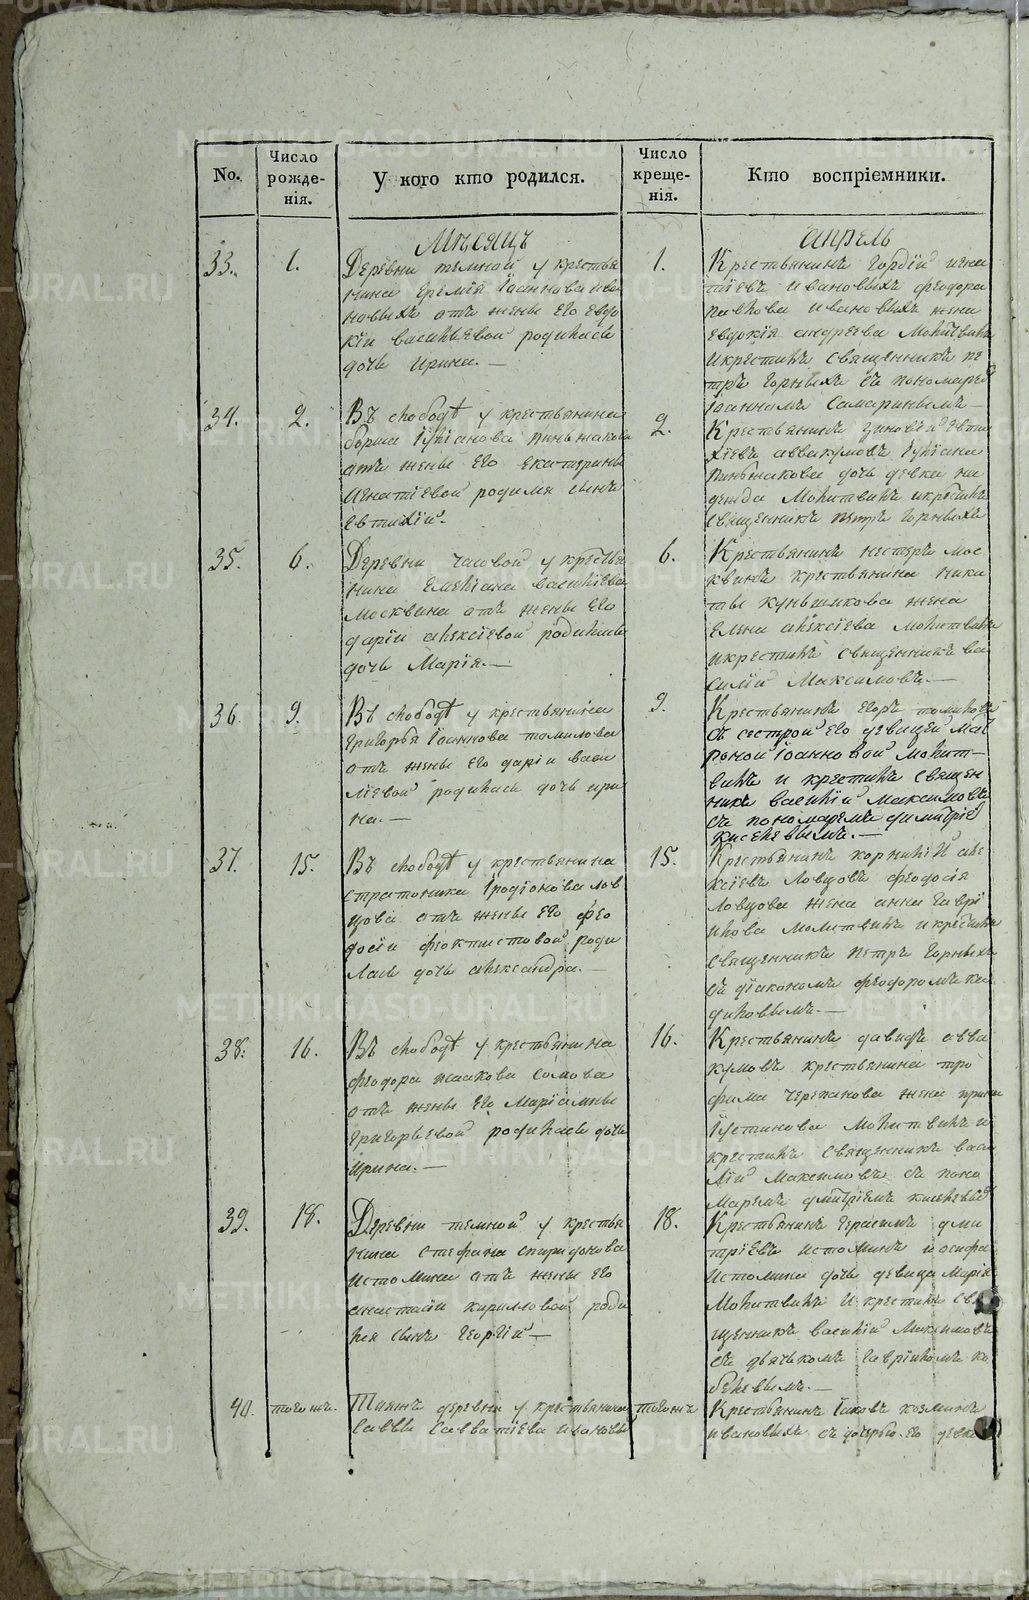 No.
Число рожде-
нія.
У кого кто родился.
Число креще-
нія.
Кто воспріемники.
Мѣсяцъ
апрель
33.
1.
Деревни темной у крестья
нина Еремѣя Іоаннова ива
новыхъ отъ жены его Евдо
кіи васильевой родилась
дочь Ирина.—
1.
Крестьянинъ Гордій игна
тіевъ ивановыхъ феодора
павлова ивановыхъ жена
Евдокія андреева Молитвилъ
и крестилъ священникъ пе
тръ Горныхъ съ пономаремъ
Іоанномъ Самаринымъ—
34.
2.
Въ слободѣ у крестьянина
бориса Іуліанова пиньжакова
отъ жены его екатерины
Игнатіевой родился сынъ
Евтихій.
2.
Крестьянинъ Зиновій Евти
хіевъ аввакумовъ Іуліана
пиньжакова дочь девка на
дежда Молитвилъ и крестилъ
священникъ петръ Горныхъ
35.
6.
Деревни часовой у крестья
нина Емеліана васильева
Москвина отъ жены его
дарьи алексіевой родилась
дочь Марія.—
6.
Крестьянинъ нестеръ мос
квинъ крестьянина ники
ты куньщикова жена
Елена алексіева молитвилъ
и крестилъ священникъ ва
силій Максимовъ.—
36.
9.
Въ слободѣ у крестьянина
Григорья Іоаннова томилова
отъ жены его дарьи васи
ліевой родилась дочь ири
на.—
9.
Крестьянинъ Егоръ томиловъ
съ сестрой его девицей мат
роной Іоанновой молит-
вилъ и крестилъ священ
никъ василій Максимовъ
съ пономаремъ димитріемъ
киселевымъ.—
37.
15.
Въ слободѣ у крестьянина
стратоника Иродіонова лов
цова отъ жены его фео
досіи феоктистовой роди
лась дочь александра.—
15.
Крестьянинъ корнилій але
ксіевъ ловцовъ феодосія
ловцова жена анна Гаврі
илова молитвилъ и крестилъ
священникъ петръ Горныхъ
съ діакономъ феодоромъ ка
диловымъ.—
38.
16.
Въ слободѣ у крестьянина
феодора исакова сомова
отъ жены его Маріамны
Григорьевой родилась дочь
Ирина.—
16.
Крестьянинъ давидъ авва
кумовъ крестьянина тро
фима черепанова жена ирина
Іустинова молитвилъ и
крестилъ священникъ васи
лій Максимовъ съ поно
маремъ дмитріемъ киселевымъ
39.
18.
Деревни темной у крестья
нина стефана спиридонова
истомина отъ жены его
анастасіи кирилловой роди
лся сынъ Георгій—
18.
Крестьянинъ Герасимъ дми
тріевъ истоминъ иосифа
истомина дочь девица Марія
Молитвилъ и крестилъ свя
щенникъ василій Максимовъ
съ дьячкомъ Гавріиломъ ко
белевымъ.—
40.
того жъ.
Тояжъ деревни у крестьянина
Саввы Савватіева ивановы
того жъ
Крестьянинъ Іаковъ козминъ
ивановыхъ съ дочерью его девкой
METRIKI.GASO-URAL.RU